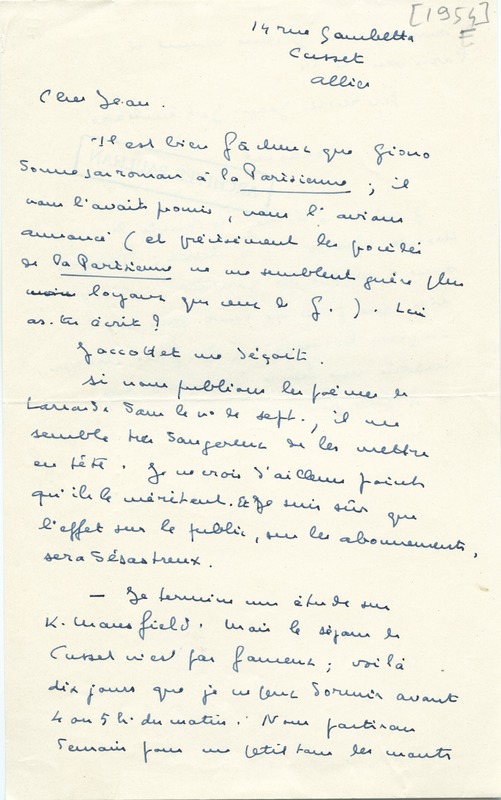 [1954]
E
14 rue Gambetta
Cusset
Allier
Cher Jean.
Il est bien fâcheux que Giono
donne son roman à la Parisienne ; il
nous l'avait promis, nous l'avions
annoncé (et précisément les procédés
de la Parisienne ne me semblent guère plus
loyaux que ceux de G.). Lui
as-tu écrit ?
Jaccottet me déçoit.
Si nous publions les poèmes de
dans le n° de sept., il me
semble très dangereux de les mettre
en tête. Je ne crois d'ailleurs point
qu'ils le méritent. Et je suis sûr que
l'effet sur le public, sur les abonnements,
sera désastreux.
— Je termine une étude sur
K. Mansfield. Mais le séjour de
Cusset n'est pas fameux ; voilà
dix jours que je ne peux dormir avant
4 ou 5 h. du matin. Nous partirons
demain pour un petit tour les monts